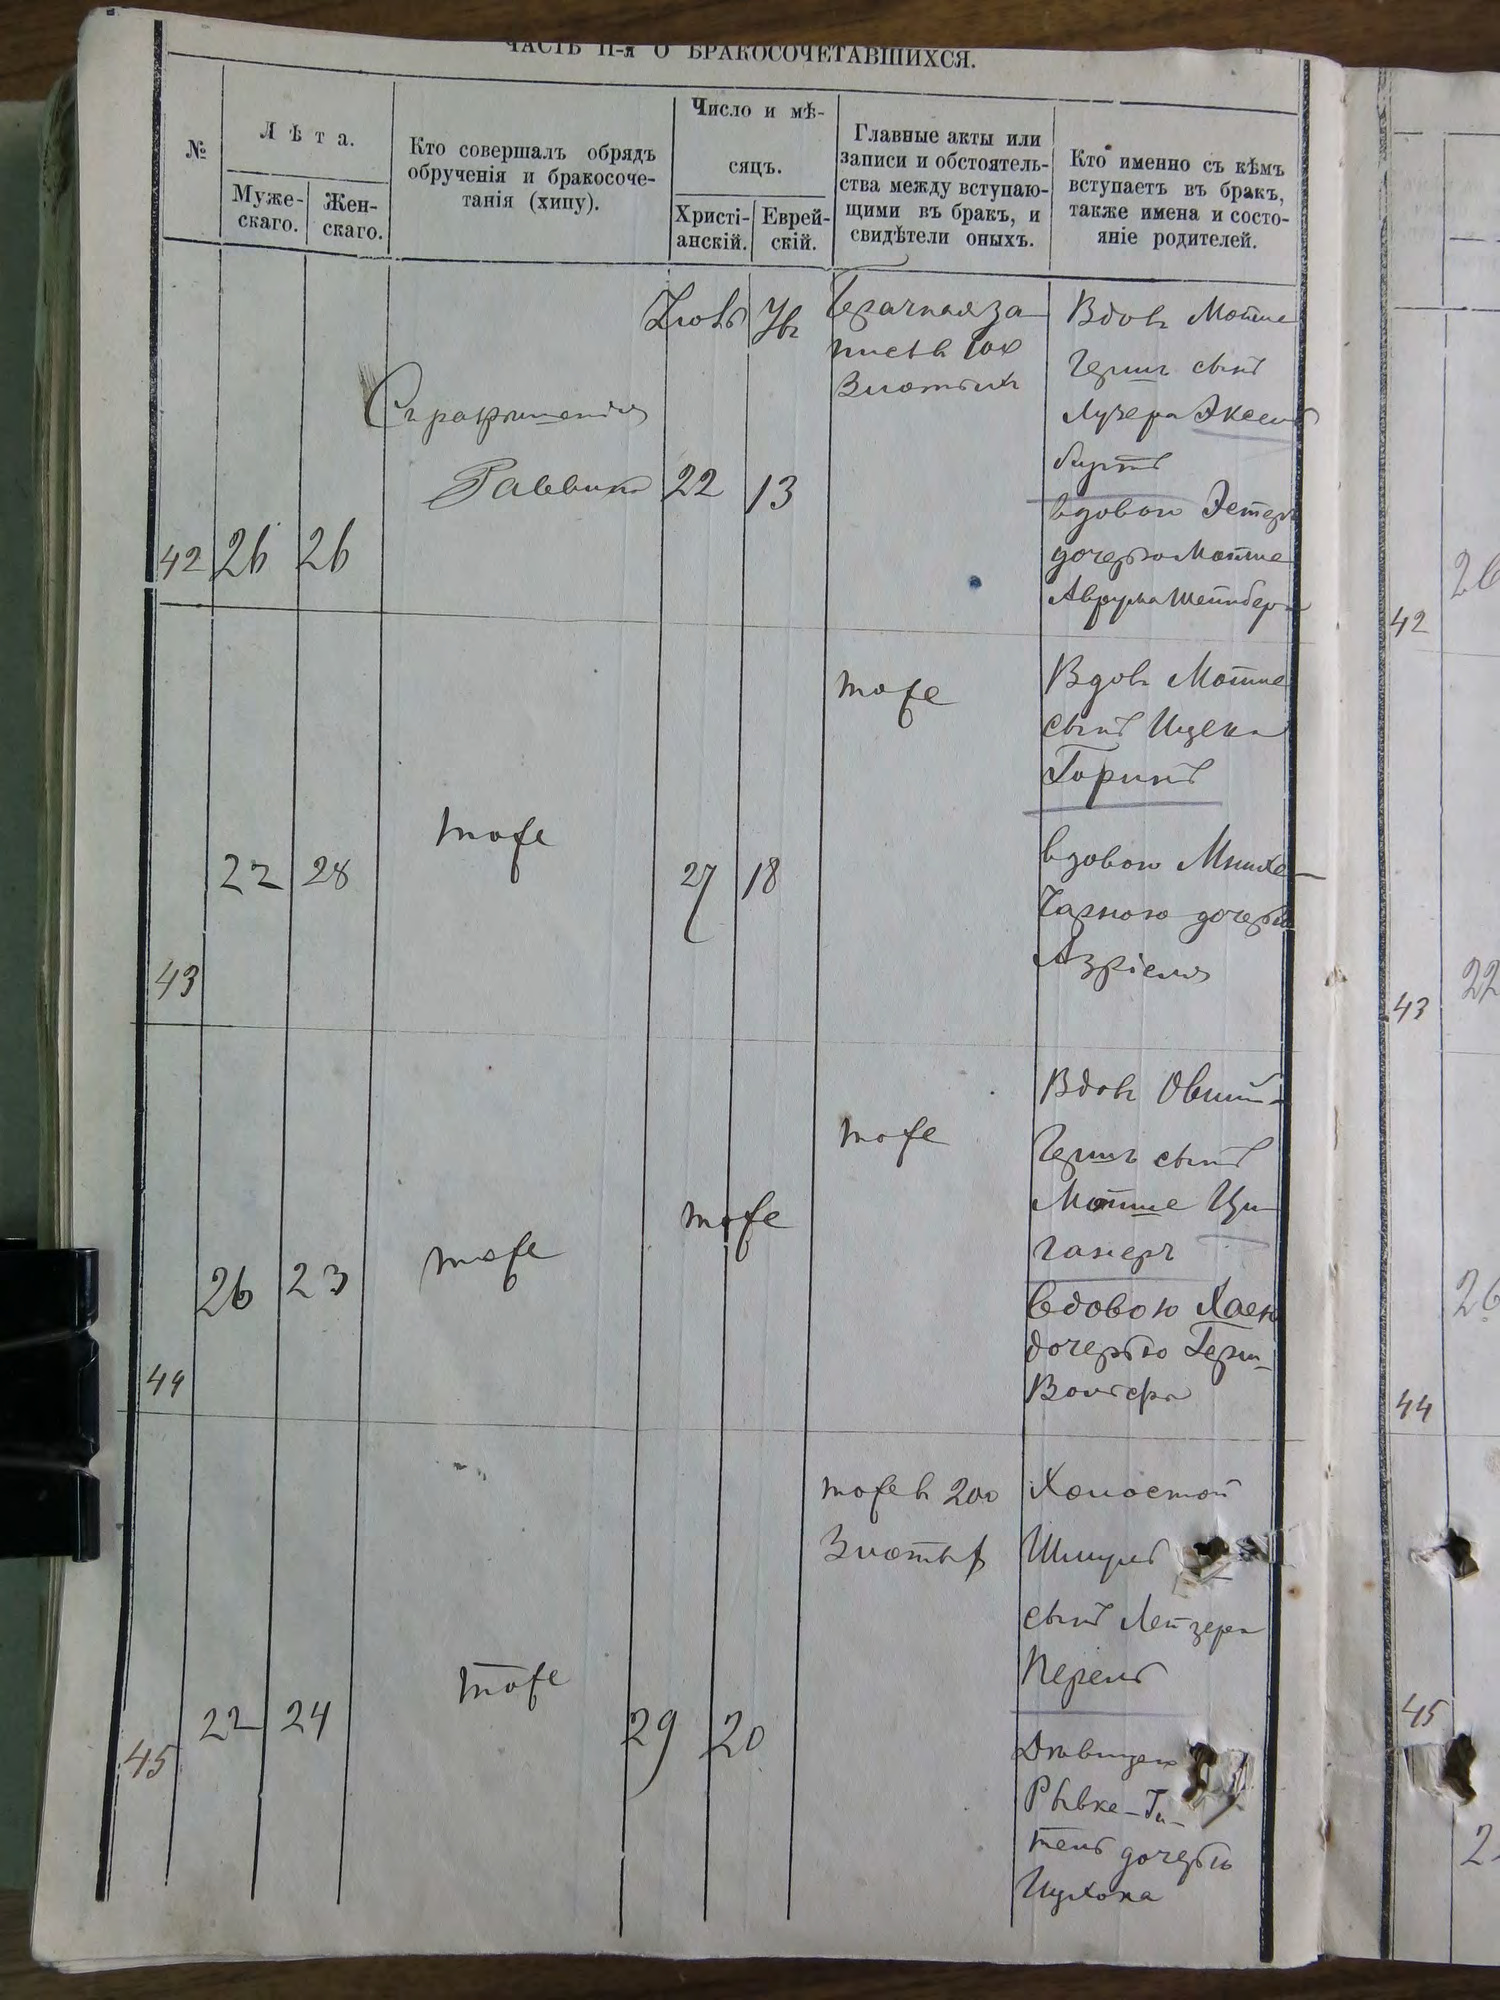 ЧАСТЬ II-я О БРАКОСОЧЕТАВШИХСЯ.
№
Лѣта.
Муже-
скаго.
Жен-
скаго.
Кто совершалъ обрядъ
обрученія и бракосоче-
танія (хипу).
Число и мѣ-
сяцъ.
Христі-
анскій.
Еврей-
скій.
Главные акты или
записи и обстоятель-
ства между вступаю-
щими въ бракъ, и
свидѣтели оныхъ.
Кто именно съ кѣмъ
вступаетъ въ бракъ,
также имена и состо-
яніе родителей.
42
26
26
Съ разрешенія
Раввина
22
13
Брачная за
пись в
Злотых
Вдовъ Мошке
Герш сынъ
Лузера Аксель
вдовою Эстеръ
дочерью Мошке
Аврума Шейнберг
43
22
28
тоже
27
18
тоже
Вдовъ Мошке
сынъ Ицека
Горинъ
вдовою
дочерью
Азріеля
44
26
23
тоже
тоже
тоже
Вдовъ Овший
Гершъ сынъ
Мошке Ци
ганеръ
вдовою Хаею
дочерью Герш
Вольфа
45
22
24
тоже
29
20
тоже в 200
Злотых
Холостой
Шмуль
сынъ Лейзера
Перель
Девицею
Рывке-Ги-
тель дочерью
Нухона
42
26
43
22
44
26
45